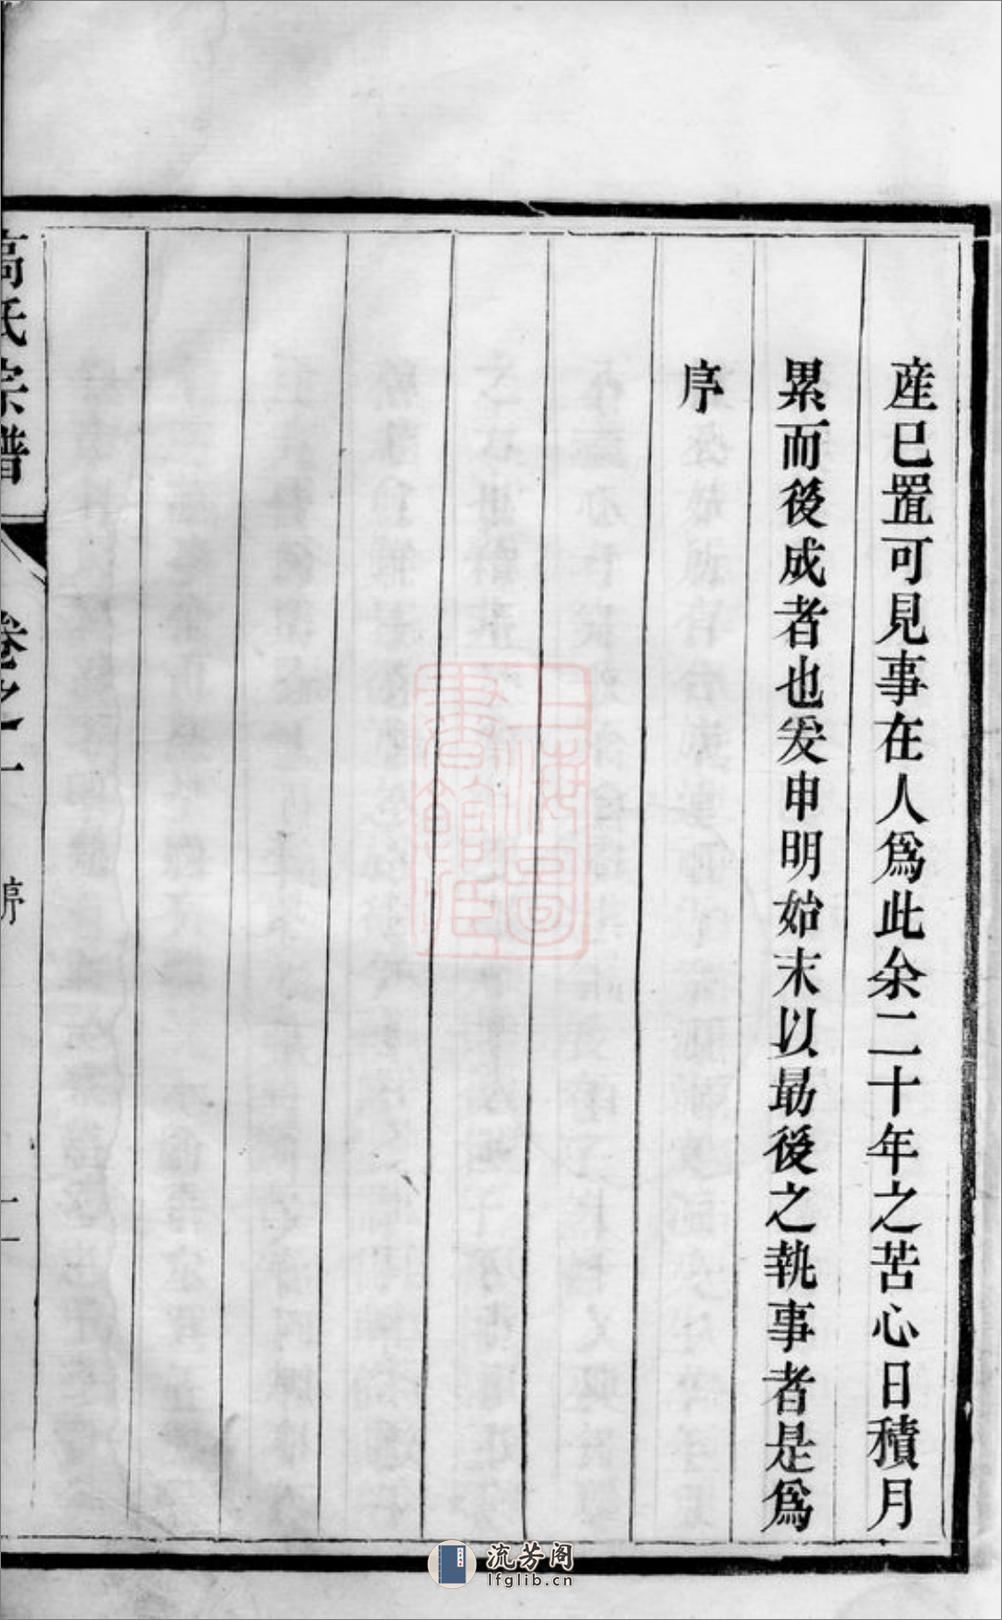 産已置可見事在人為此余二十年之苦心日積月
累而後成者也爰申明始末以勗後之執事者是為
序
高氏宗譜
卷之一
序
上海圖
書館藏
流芳阁
lfglib.cn